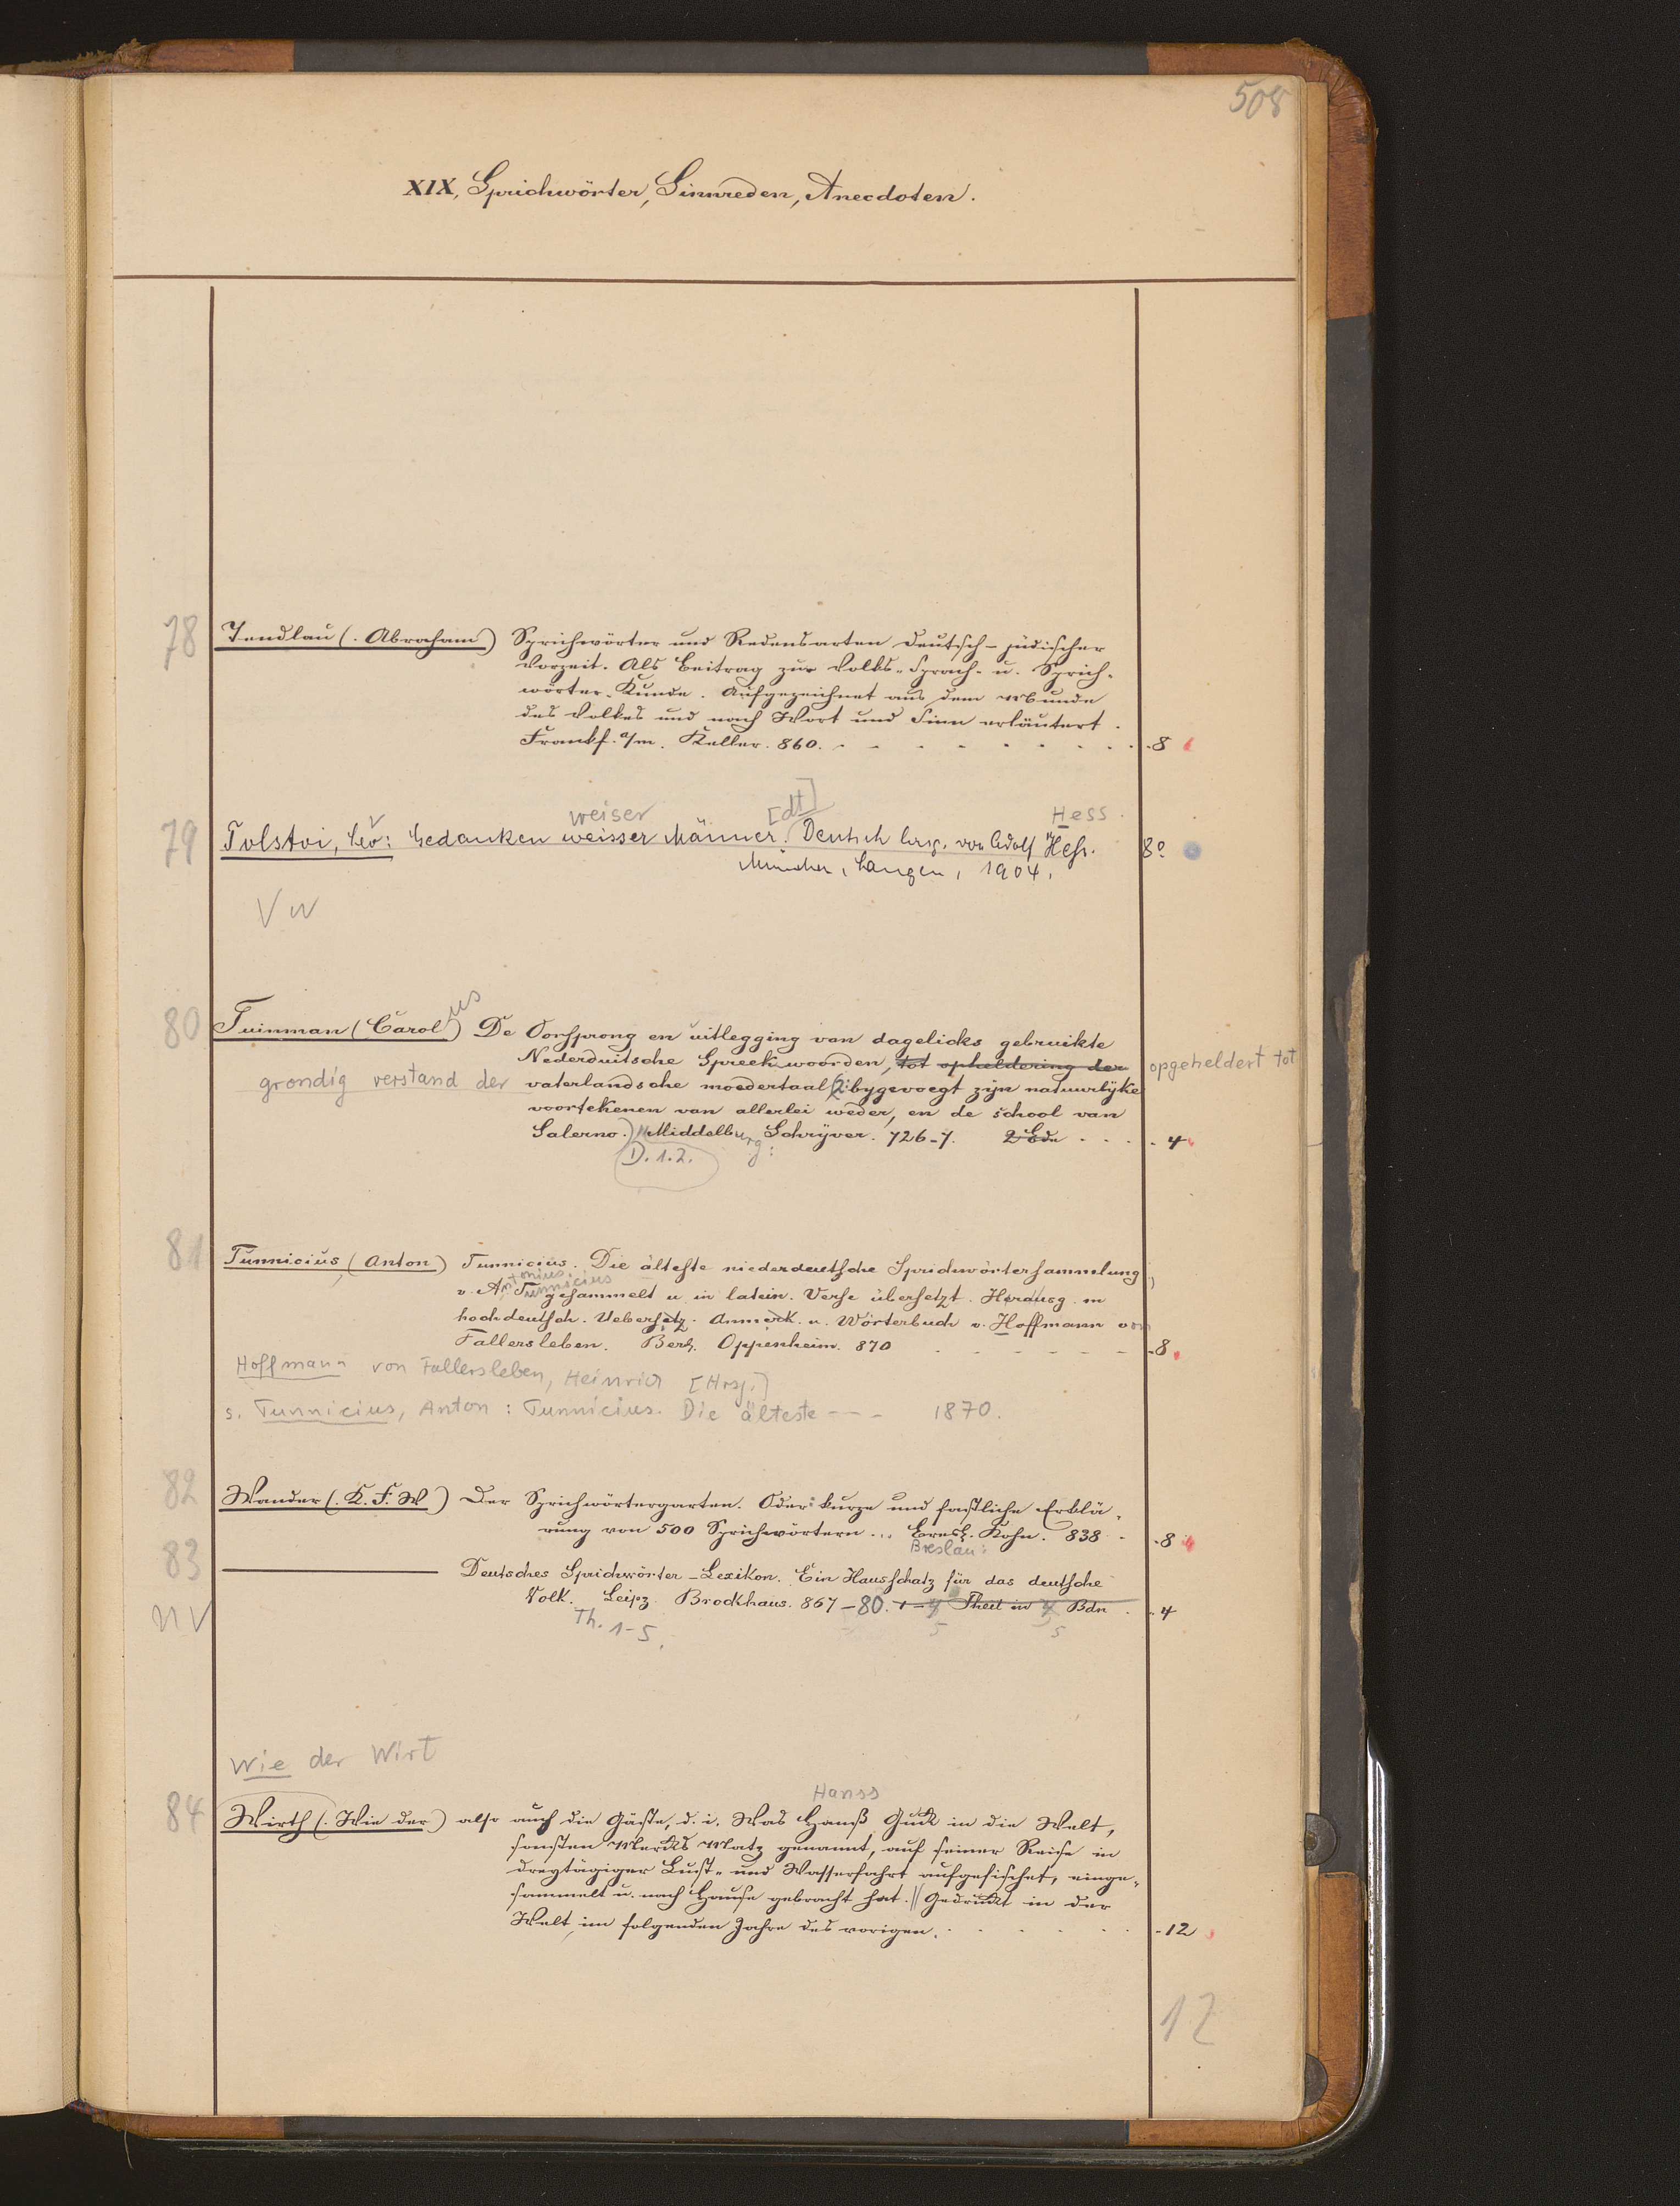 508
XIX, Sprichwörter, Sinnreden, Anecdoten.
78 Tendlau (. Abraham) Sprichwörter und Redensarten deutsch-jüdischer
Vorzeit. Als Beitrag zur Volks-, Sprach- u. Sprich-
wörter-Kunde. Aufgezeichnet aus dem Munde
des Volkes und nach Wort und Sinn erläutert.
Frankf. a/m. Keller. 860. 8
weiser [dt] Hess.
79 Tolstoi, Leo: Gedanken weisser Männer. Deutsch hrsg. von Adolf Heß. 8°
München, Langen, 1904.
V w
80 Tuinman (Carolus) De Oorsprong en uitlegging van dagelicks gebruikte
Nederduitsche Spreekwoorden, tot opheldering der opgeheldert tot
grondig verstand der vaterlandsche moedertaal (2: bygevoegt zijn natuurlyke
voortekenen van allerlei weder, en de school van
Salerno.) Middelburg: Schryver. 726-7. 2 Bde 4
D. 1.2.
81 Tunnicius, (Anton) Tunnicius. Die älteste niederdeutsche Sprichwörtersammlung,
v. Antonius Tunnicius gesammelt u. in latein. Verse übersetzt. Herausg. m
hochdeutsch. Uebersetz. Anmerk. u. Wörterbuch v. Hoffmann von
Fallersleben. Berl. Oppenheim. 870 8
Hoffmann von Fallersleben, Heinrich [Hrsg.]
s. Tunnicius, Anton: Tunnicius. Die älteste - - - 1870.
82 Wander (. K. F. W) Der Sprichwörtergarten. Oder: kurze und faßliche Erklä-
rung von 500 Sprichwörtern ... Bresl. Kohn. 838 8
Breslau:
83 Deutsches Sprichwörter-Lexikon. Ein Hausschatz für das deutsche
nv Volk. Leipz. Brockhaus. 867-80. 1-4 Theil in 4 Bdn 4
Th. 1-5. 5 5
Wie der Wirt
Hanss
84 Wirth (. Wie der) also auch die Gäste, d. i. Was Hanß Guck in die Welt,
sonsten Merks Matz genannt, auf seiner Reise in
dreytägiger Lust- und Wasserfahrt aufgefischet, einge-
sammelt u. nach Hause gebracht hat. || Gedruckt in der
Welt, im folgenden Jahre des vorigen. 12
12